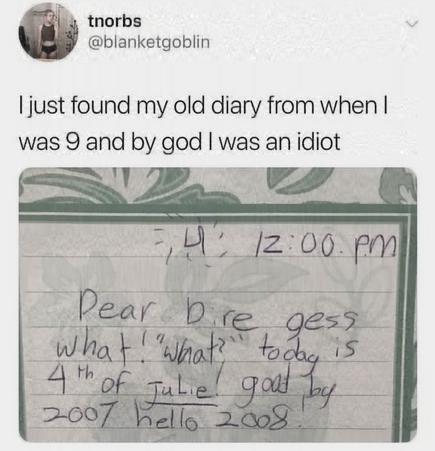 tnorbs
@blanketgoblin
I just found my old diary from when I
was 9 and by god I was an idiot
12:00. pm
Dear Dire gess
what! "what?" today is
4th of Julie! good by
2007 hello 2008!